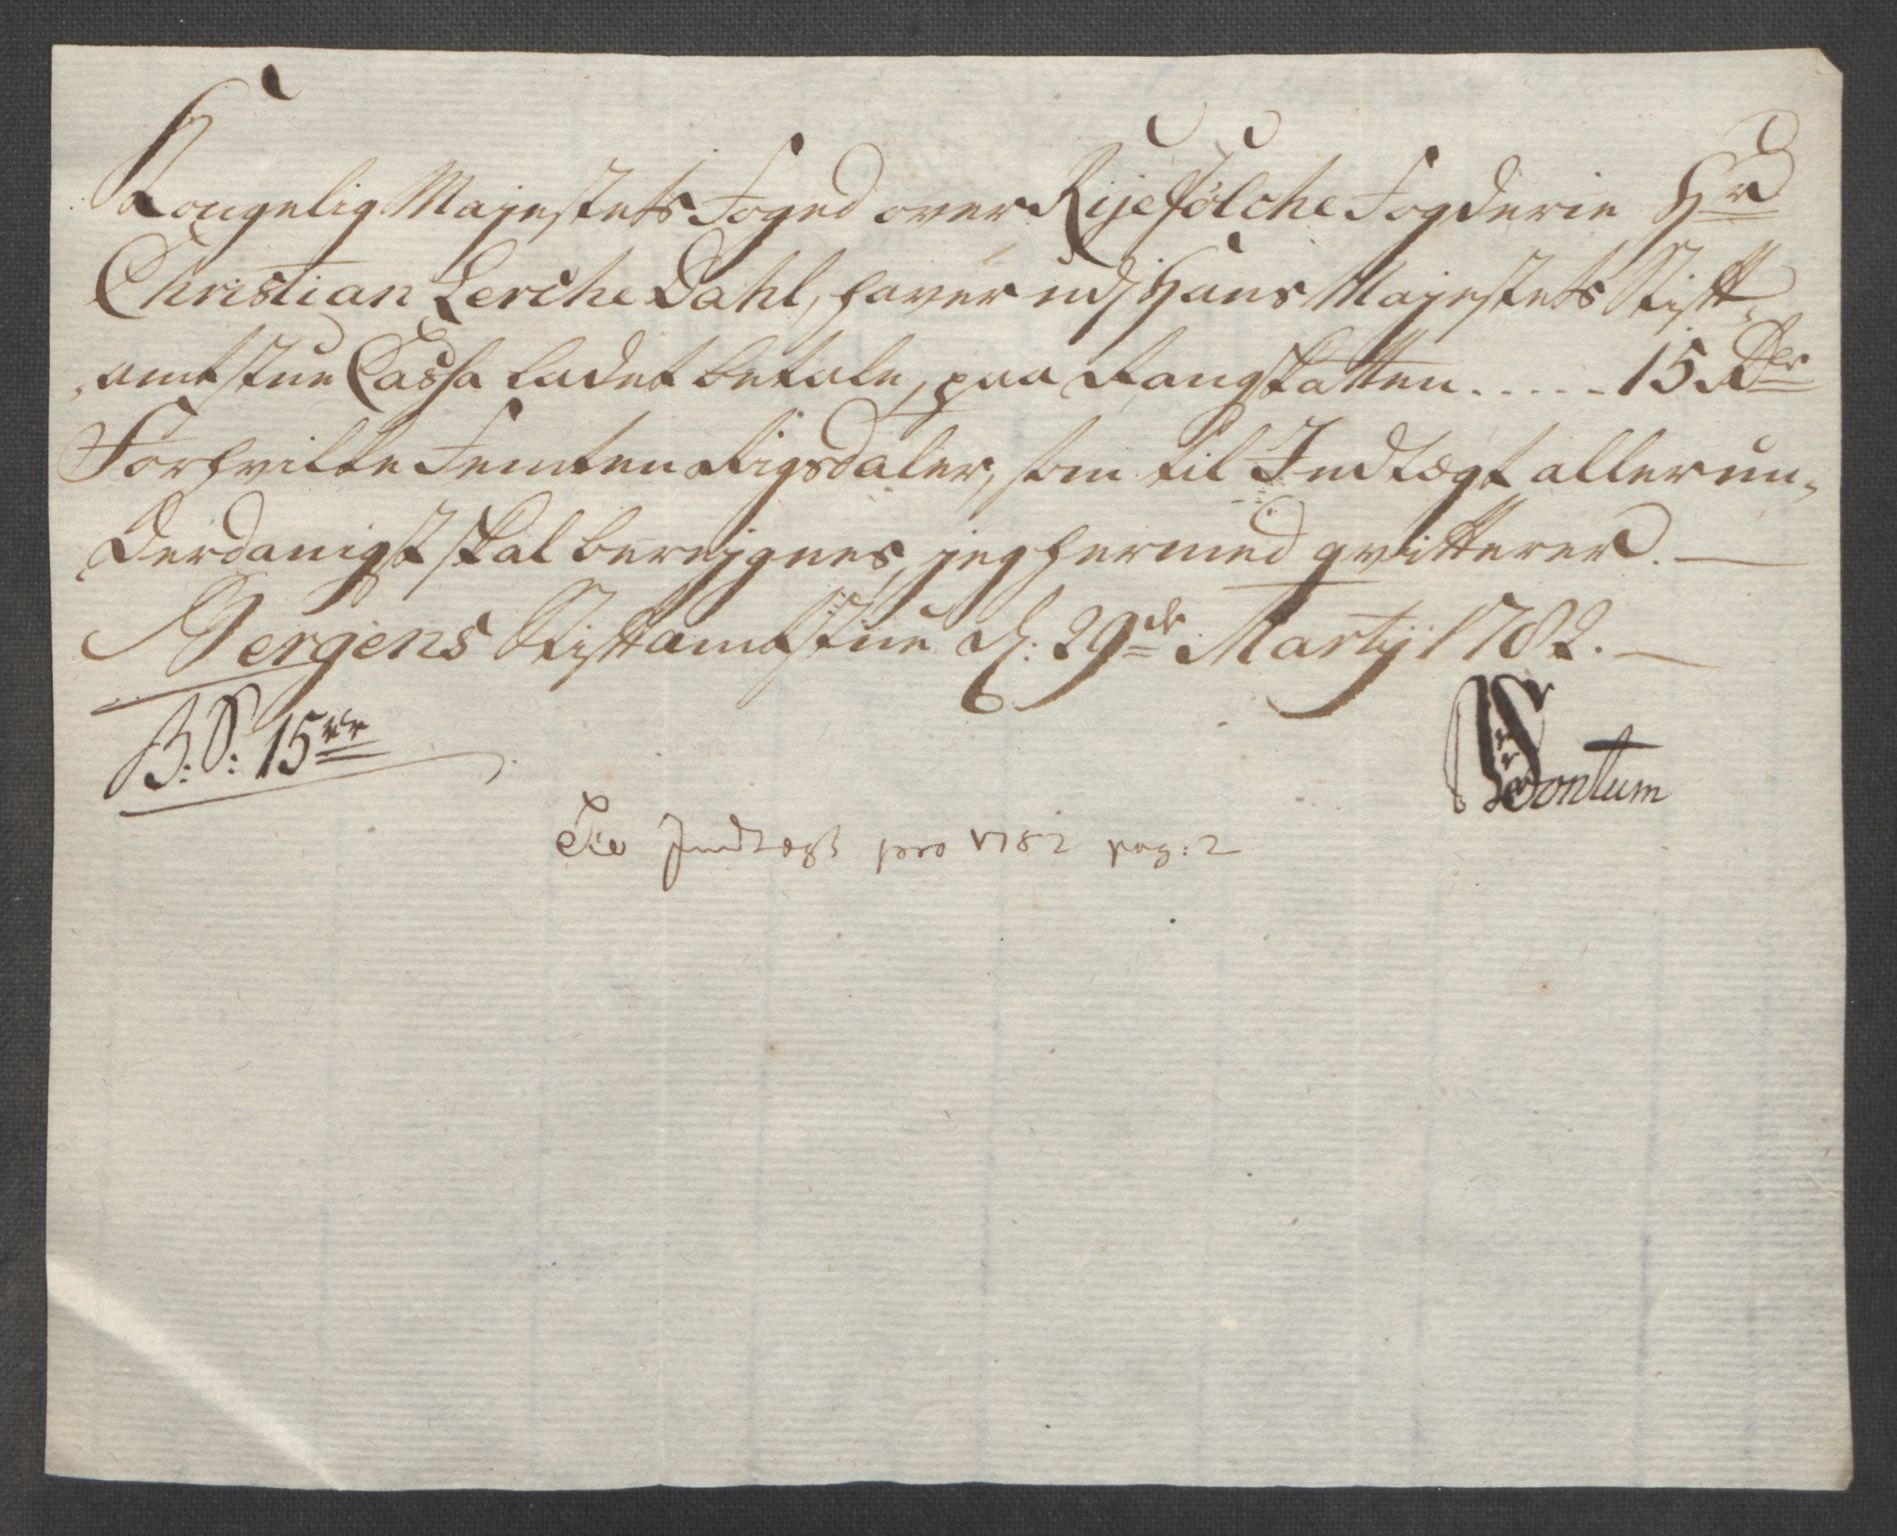 Kongelig Majestets Foged over Rÿefÿlche Fogderie Hr
Christian Lerche Dahl, haver udj Hans Majestets Stift-
amtstue Cassa ladet betale, paa Rangskatten . . . . . 15 Rdr
Forhvilke Femten Rigsdaler, som til Indtægt allerun-
derdanigst skal berejgnes, jeg hermed qvitterer. —
Bergens Stiftamtstue d: 29de Martÿ 1782. —
B: S: 15 rdr
Sontum
Til Indtægt pro 1782 pag: 2